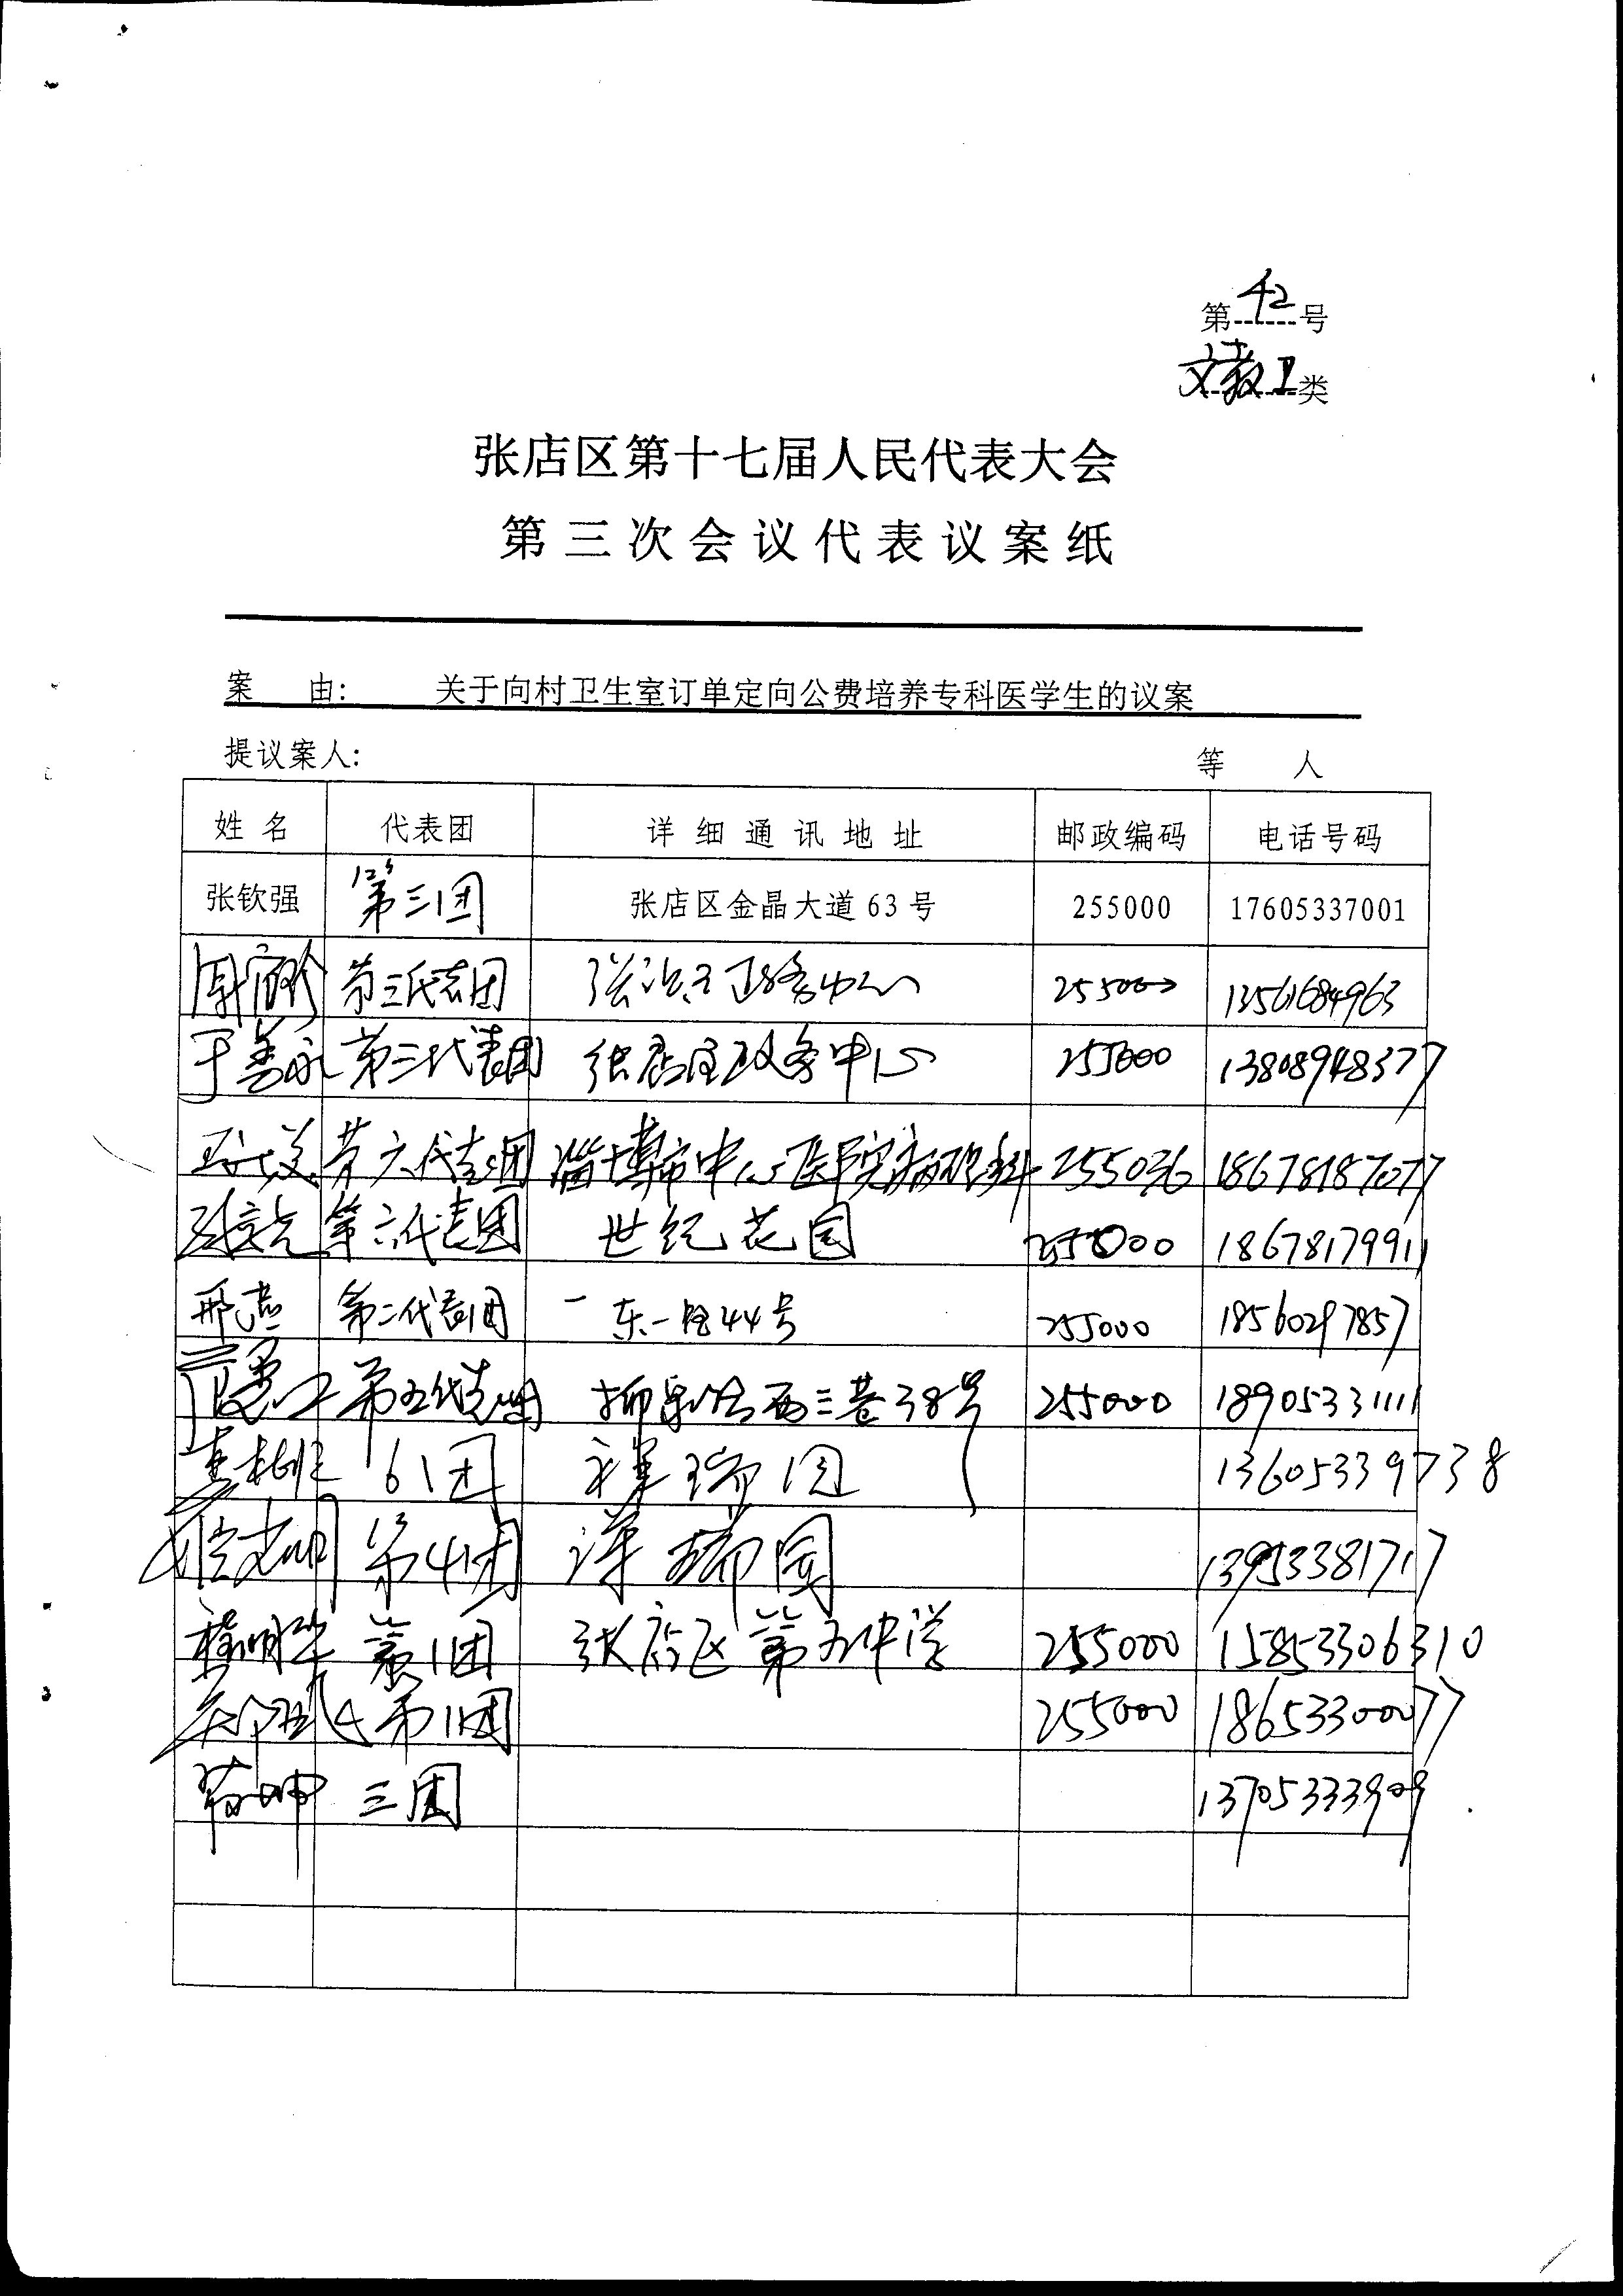 第42号
文教卫类
张店区第十七届人民代表大会
第三次会议代表议案纸
案 由: 关于向村卫生室订单定向公费培养专科医学生的议案
提议案人: 等 人
姓名 代表团 详细通讯地址 邮政编码 电话号码
张钦强 第三团 张店区金晶大道63号 255000 17605337001
第三代表团 张店区政务中心 255000 13561684963
于善永 第三代表团 张店区政务中心 255000 13808948377
第六代表团 淄博市中心医院病理科 255036 18678187077
第六代表团 世纪花园 255000 18678179911
邢燕 第二代表团 东一路44号 255000 18560297857
第五代表团 柳泉路西三巷38号 255000 18905331111
6团 祥瑞园 13605339738
第4团 祥瑞园 13953381717
第1团 张店区第九中学 255000 15853306310
第1团 255000 18653300077
三团 13705333909